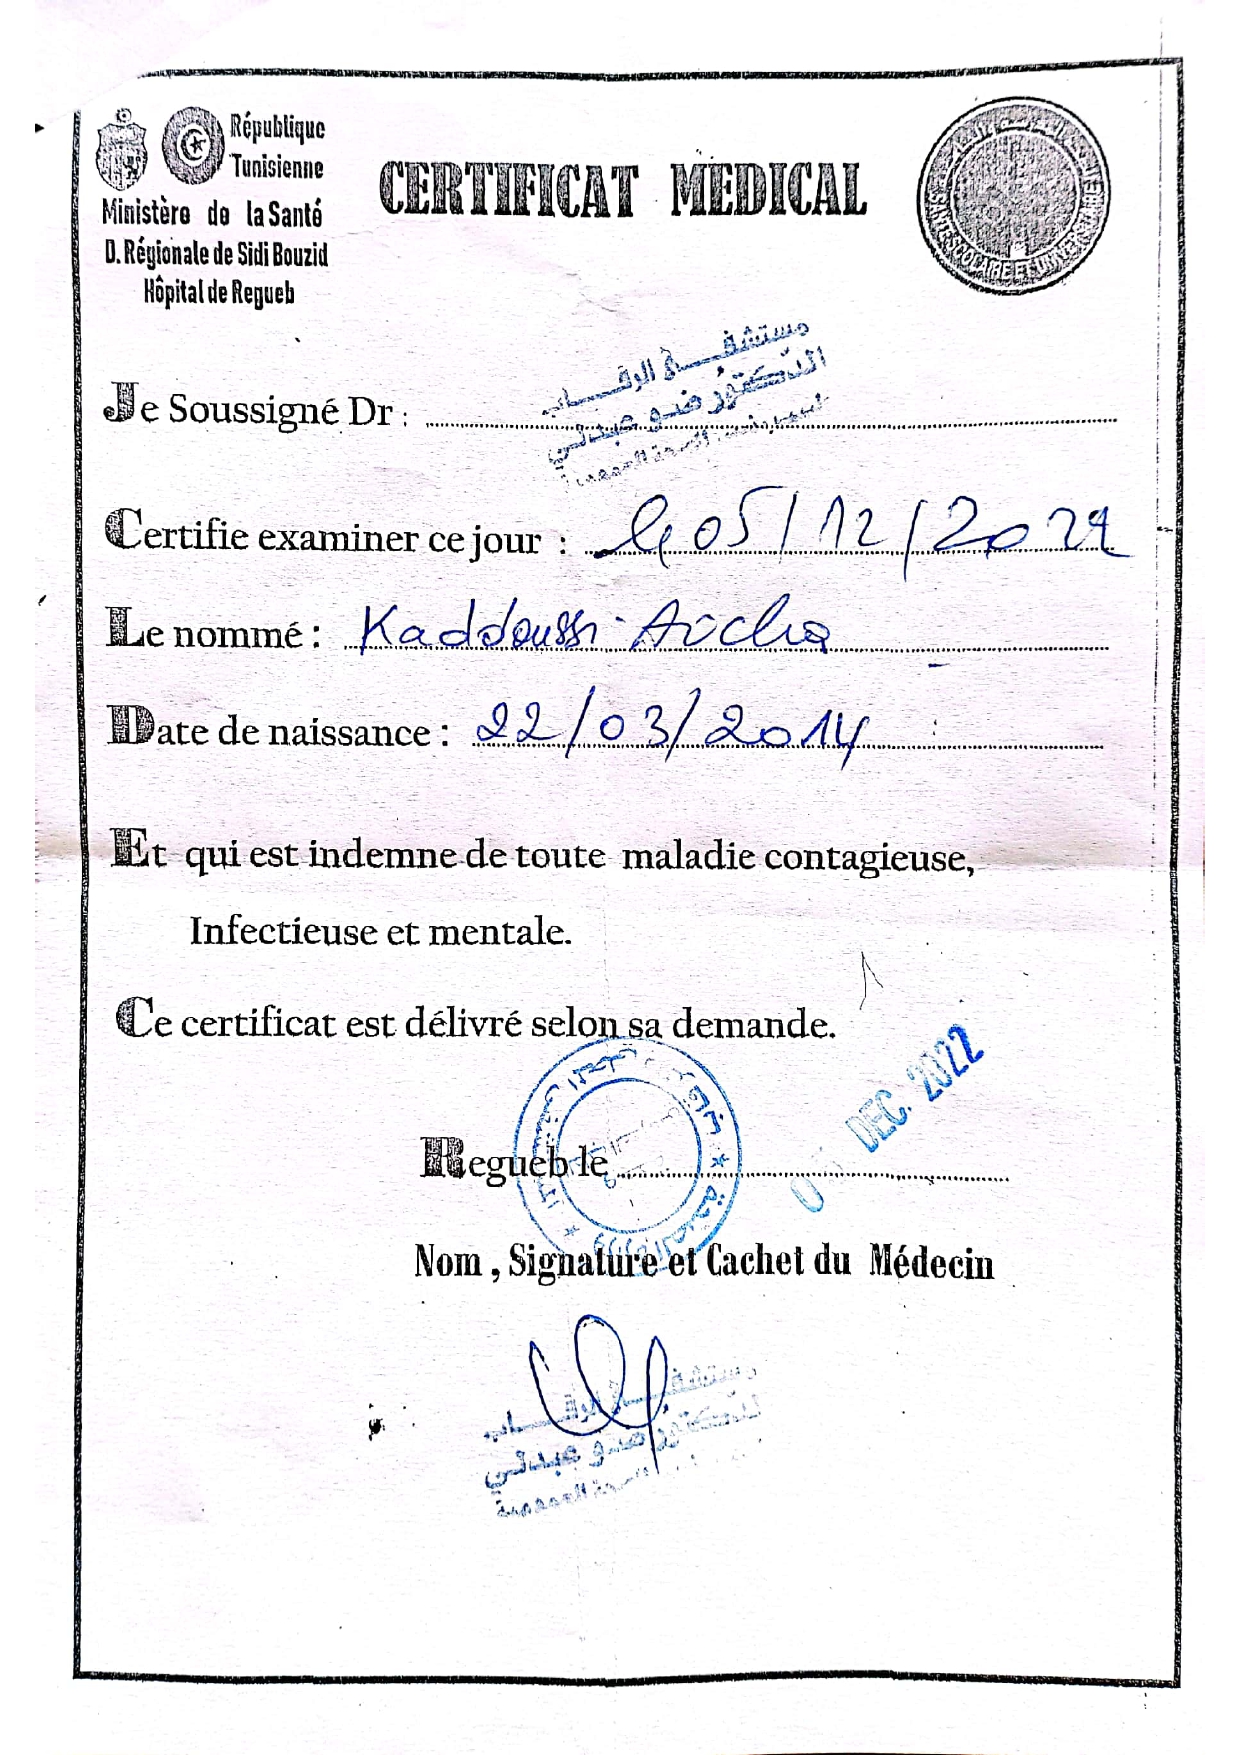 République
Tunisienne
Ministère de la Santé
D. Régionale de Sidi Bouzid
Hôpital de Regueb
CERTIFICAT MEDICAL
SANTE SCOLAIRE ET UNIVERSITAIRE
مستشفى الرقاب
الدكتور ضو عبدلي
الصحة العمومية
Je Soussigné Dr :
Certifie examiner ce jour : le 05/12/2022
Le nommé : Kaddoussi Aicha
Date de naissance : 22/03/2014
Et qui est indemne de toute maladie contagieuse,
Infectieuse et mentale.
Ce certificat est délivré selon sa demande.
DEC. 2022
Regueb le
Nom , Signature et Cachet du Médecin
مستشفى الرقاب
الدكتور ضو عبدلي
الصحة العمومية